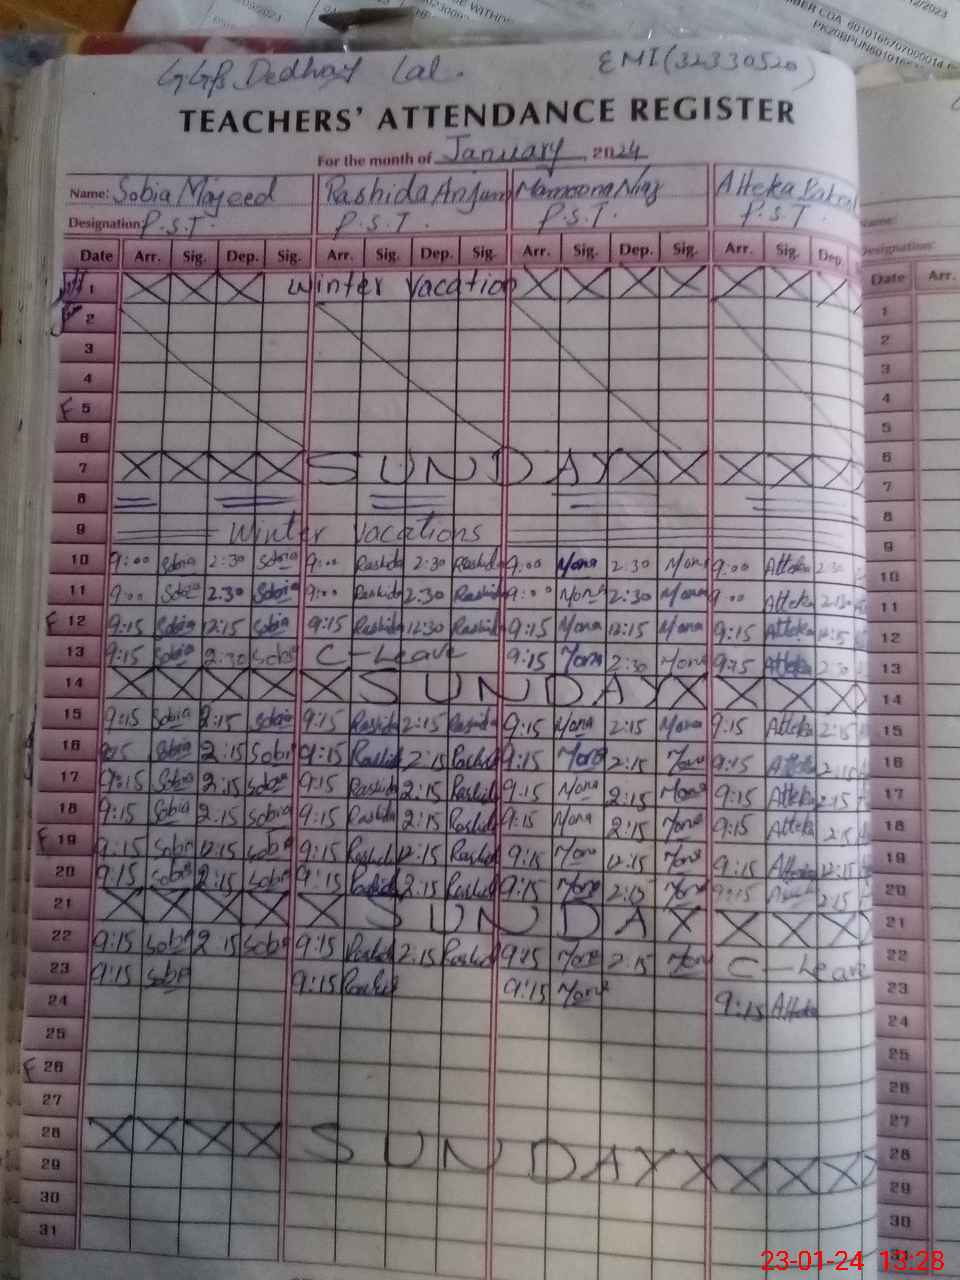 GGPS Dedhay Lal. EMI(32330520)
TEACHERS' ATTENDANCE REGISTER
For the month of January 2024
Name: Sobia Majeed Rashida Anjum Mamoona Niaz Atteka
Designation P.S.T. P.S.T. P.S.T. P.S.T.
Date Arr. Sig. Dep. Sig. Arr. Sig. Dep. Sig. Arr. Sig. Dep. Sig. Arr. Sig. Dep.
1 Winter Vacation
2
3
4
F 5
6
7 SUNDAY
8
9 Winter Vacations
10 9:00 Sobia 2:30 Sobia 9:00 Rashida 2:30 Rashida 9:00 Mona 2:30 Mona 9:00 Atteka 2:30
11 9:00 Sobia 2:30 Sobia 9:00 Rashida 2:30 Rashida 9:00 Mona 2:30 Mona 9:00 Atteka 2:30
F 12 9:15 Sobia 12:15 Sobia 9:15 Rashida 12:30 Rashida 9:15 Mona 12:15 Mona 9:15 Atteka 12:15
13 9:15 Sobia 2:30 Sobia C-Leave 9:15 Mona 2:30 Mona 9:15 Atteka 2:30
14 SUNDAY
15 9:15 Sobia 2:15 Sobia 9:15 Rashida 2:15 Rashida 9:15 Mona 2:15 Mona 9:15 Atteka 2:15
16 9:15 Sobia 2:15 Sobia 9:15 Rashida 2:15 Rashida 9:15 Mona 2:15 Mona 9:15 Atteka 2:15
17 9:15 Sobia 2:15 Sobia 9:15 Rashida 2:15 Rashida 9:15 Mona 2:15 Mona 9:15 Atteka 2:15
18 9:15 Sobia 2:15 Sobia 9:15 Rashida 2:15 Rashida 9:15 Mona 2:15 Mona 9:15 Atteka 2:15
F 19 9:15 Sobia 12:15 Sobia 9:15 Rashida 12:15 Rashida 9:15 Mona 12:15 Mona 9:15 Atteka 12:15
20 9:15 Sobia 2:15 Sobia 9:15 Rashida 2:15 Rashida 9:15 Mona 2:15 Mona 9:15 2:15
21 SUNDAY
22 9:15 Sobia 2:15 Sobia 9:15 Rashida 2:15 Rashida 9:15 Mona 2:15 Mona C-Leave
23 9:15 Sobia 9:15 Rashida 9:15 Mona 9:15 Atteka
24
25
F 26
27
28 SUNDAY
29
30
31
Designation:
Date Arr.
1
2
3
4
5
6
7
8
9
10
11
12
13
14
15
16
17
18
19
20
21
22
23
24
25
26
27
28
29
30
23-01-24 13:28